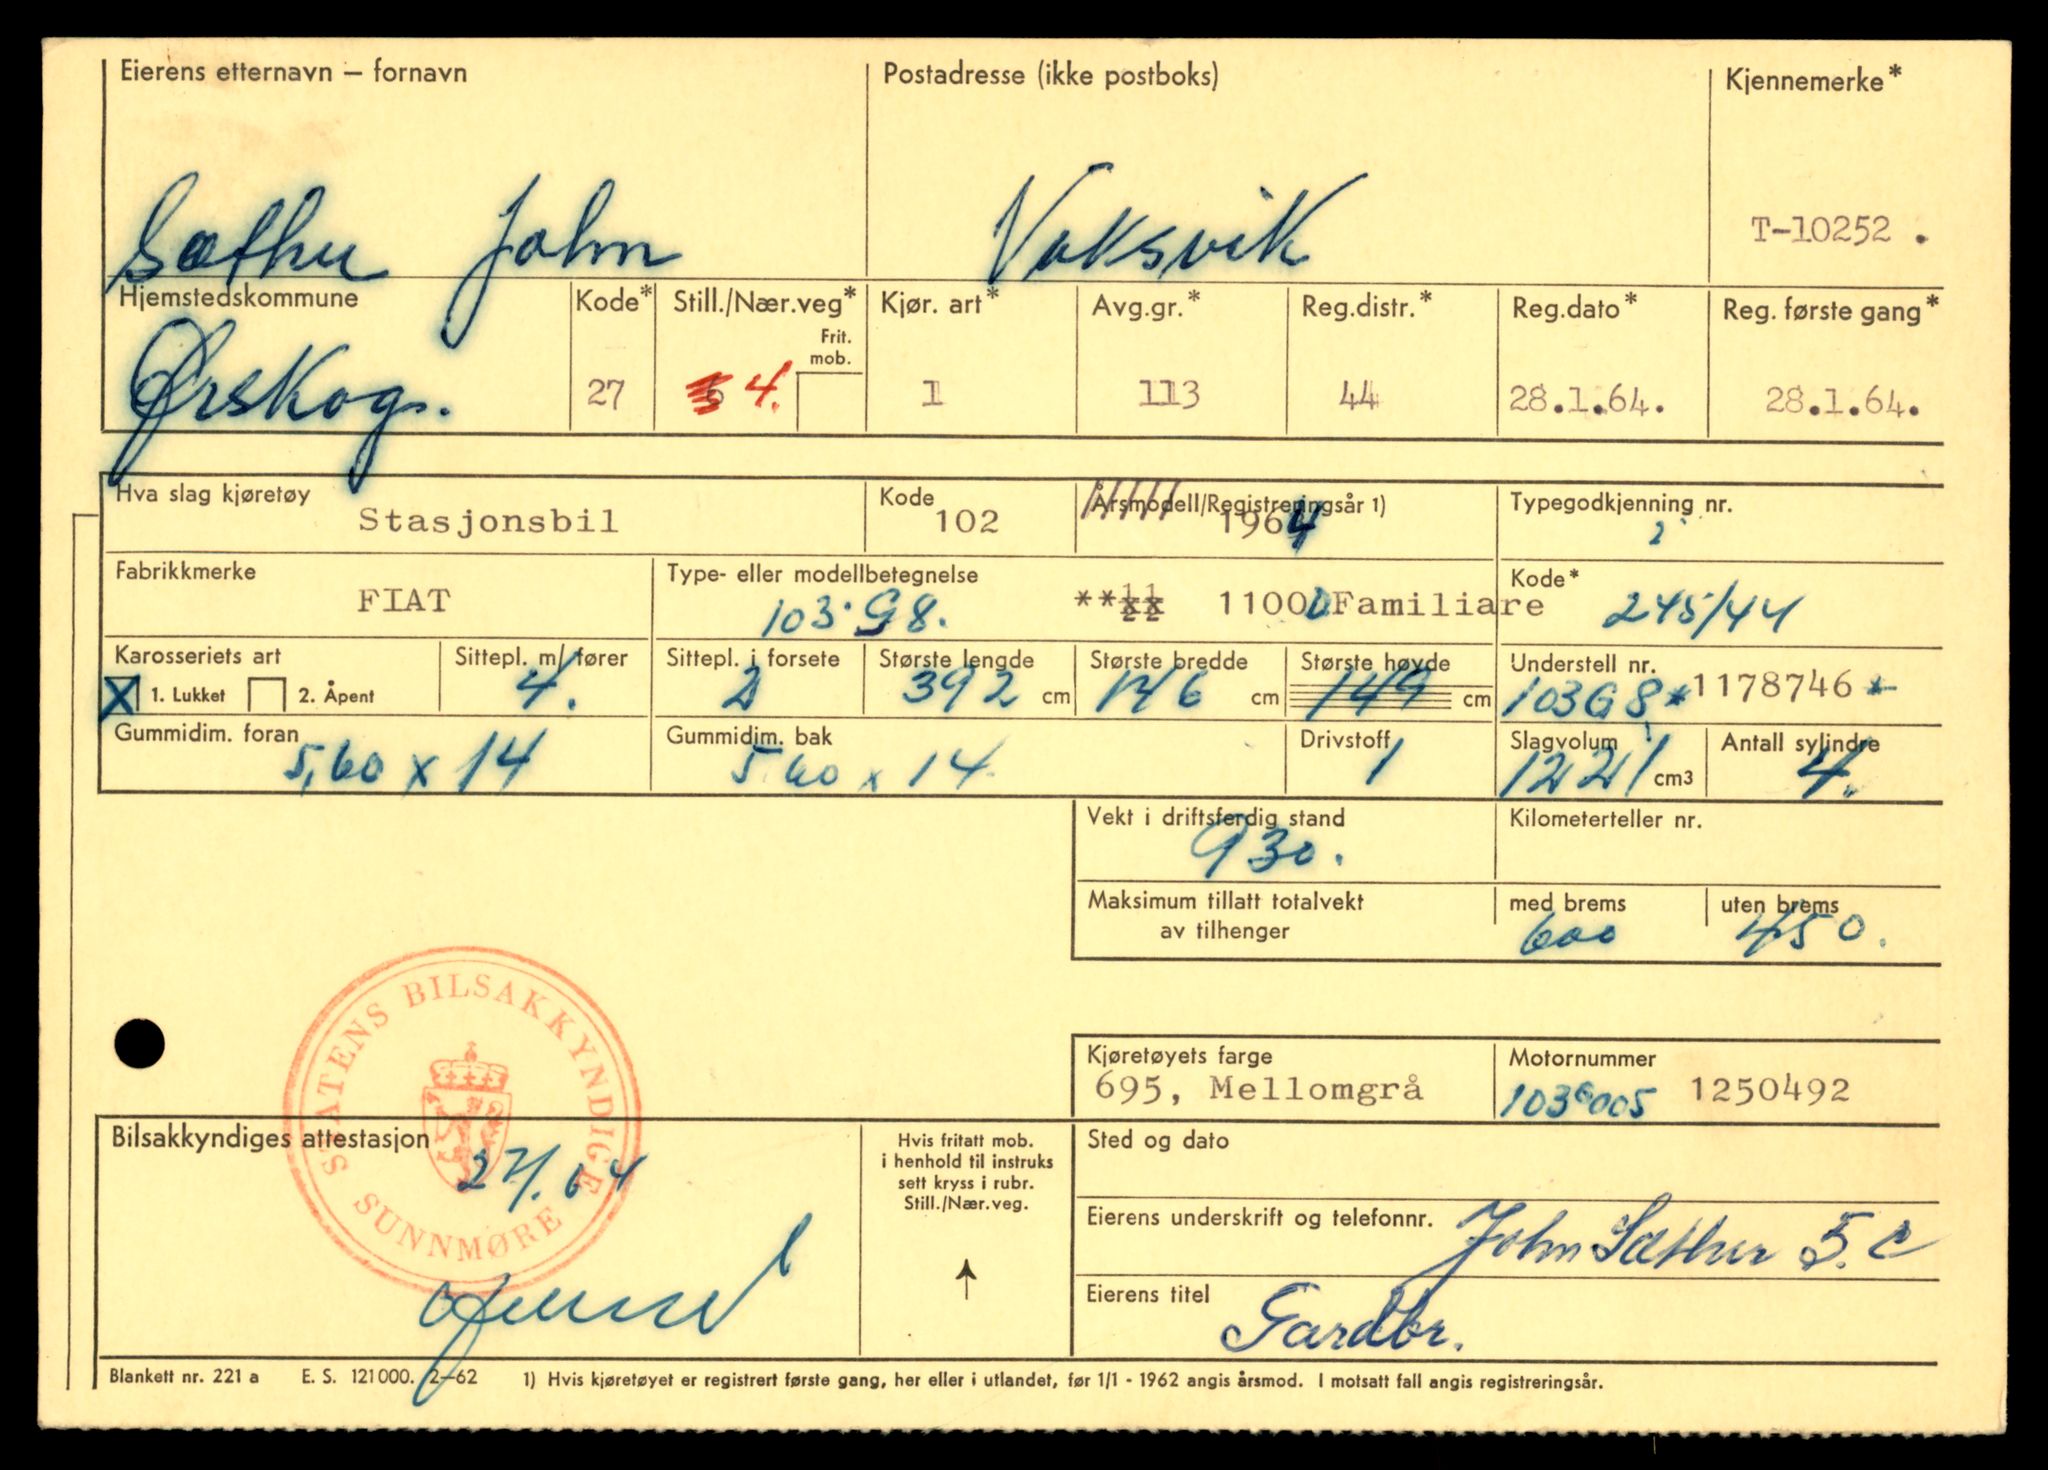 Eierens etternavn – fornavn Postadresse (ikke postboks) Kjennemerke*
Sæther John Vaksvik T-10252 .
Hjemstedskommune Kode* Still./Nær.veg* Kjør. art* Avg.gr.* Reg.distr.* Reg.dato* Reg. første gang*
Frit.
mob.
Ørskog. 27 4. 1 113 44 28.1.64. 28.1.64.
Hva slag kjøretøy Kode Årsmodell/Registreringsår 1) Typegodkjenning nr.
Stasjonsbil 102 1964 2
Fabrikkmerke Type- eller modellbetegnelse Kode*
FIAT 103.G8. ** 1100D Familiare 245/44
Karosseriets art Sittepl. m/ fører Sittepl. i forsete Største lengde Største bredde Største høyde Understell nr.
X 1. Lukket 2. Åpent 4. 2 392 cm 146 cm 149 cm 103G8*1178746*
Gummidim. foran Gummidim. bak Drivstoff Slagvolum Antall sylindre
5,60 x 14 5.60 x 14 1 1221 cm3 4.
Vekt i driftsferdig stand Kilometerteller nr.
930.
Maksimum tillatt totalvekt av tilhenger med brems uten brems
600 450.
STATENS BILSAKKYNDIGE
SUNNMØRE
Kjøretøyets farge Motornummer
695, Mellomgrå 103G005 1250492
Bilsakkyndiges attestasjon Hvis fritatt mob.
i henhold til instruks
sett kryss i rubr.
Still./Nær.veg.
Sted og dato
27/1.64
Eierens underskrift og telefonnr. John Sæther 5.c
Eierens titel Gardbr.
Blankett nr. 221 a E. S. 121000. 2–62 1) Hvis kjøretøyet er registrert første gang, her eller i utlandet, før 1/1 - 1962 angis årsmod. I motsatt fall angis registreringsår.